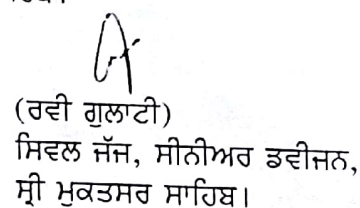 (ਰਵੀ ਗੁਲਾਟੀ)
ਸਿਵਲ ਜੱਜ, ਸੀਨੀਅਰ ਡਵੀਜਨ,
ਸ੍ਰੀ ਮੁਕਤਸਰ ਸਾਹਿਬ।